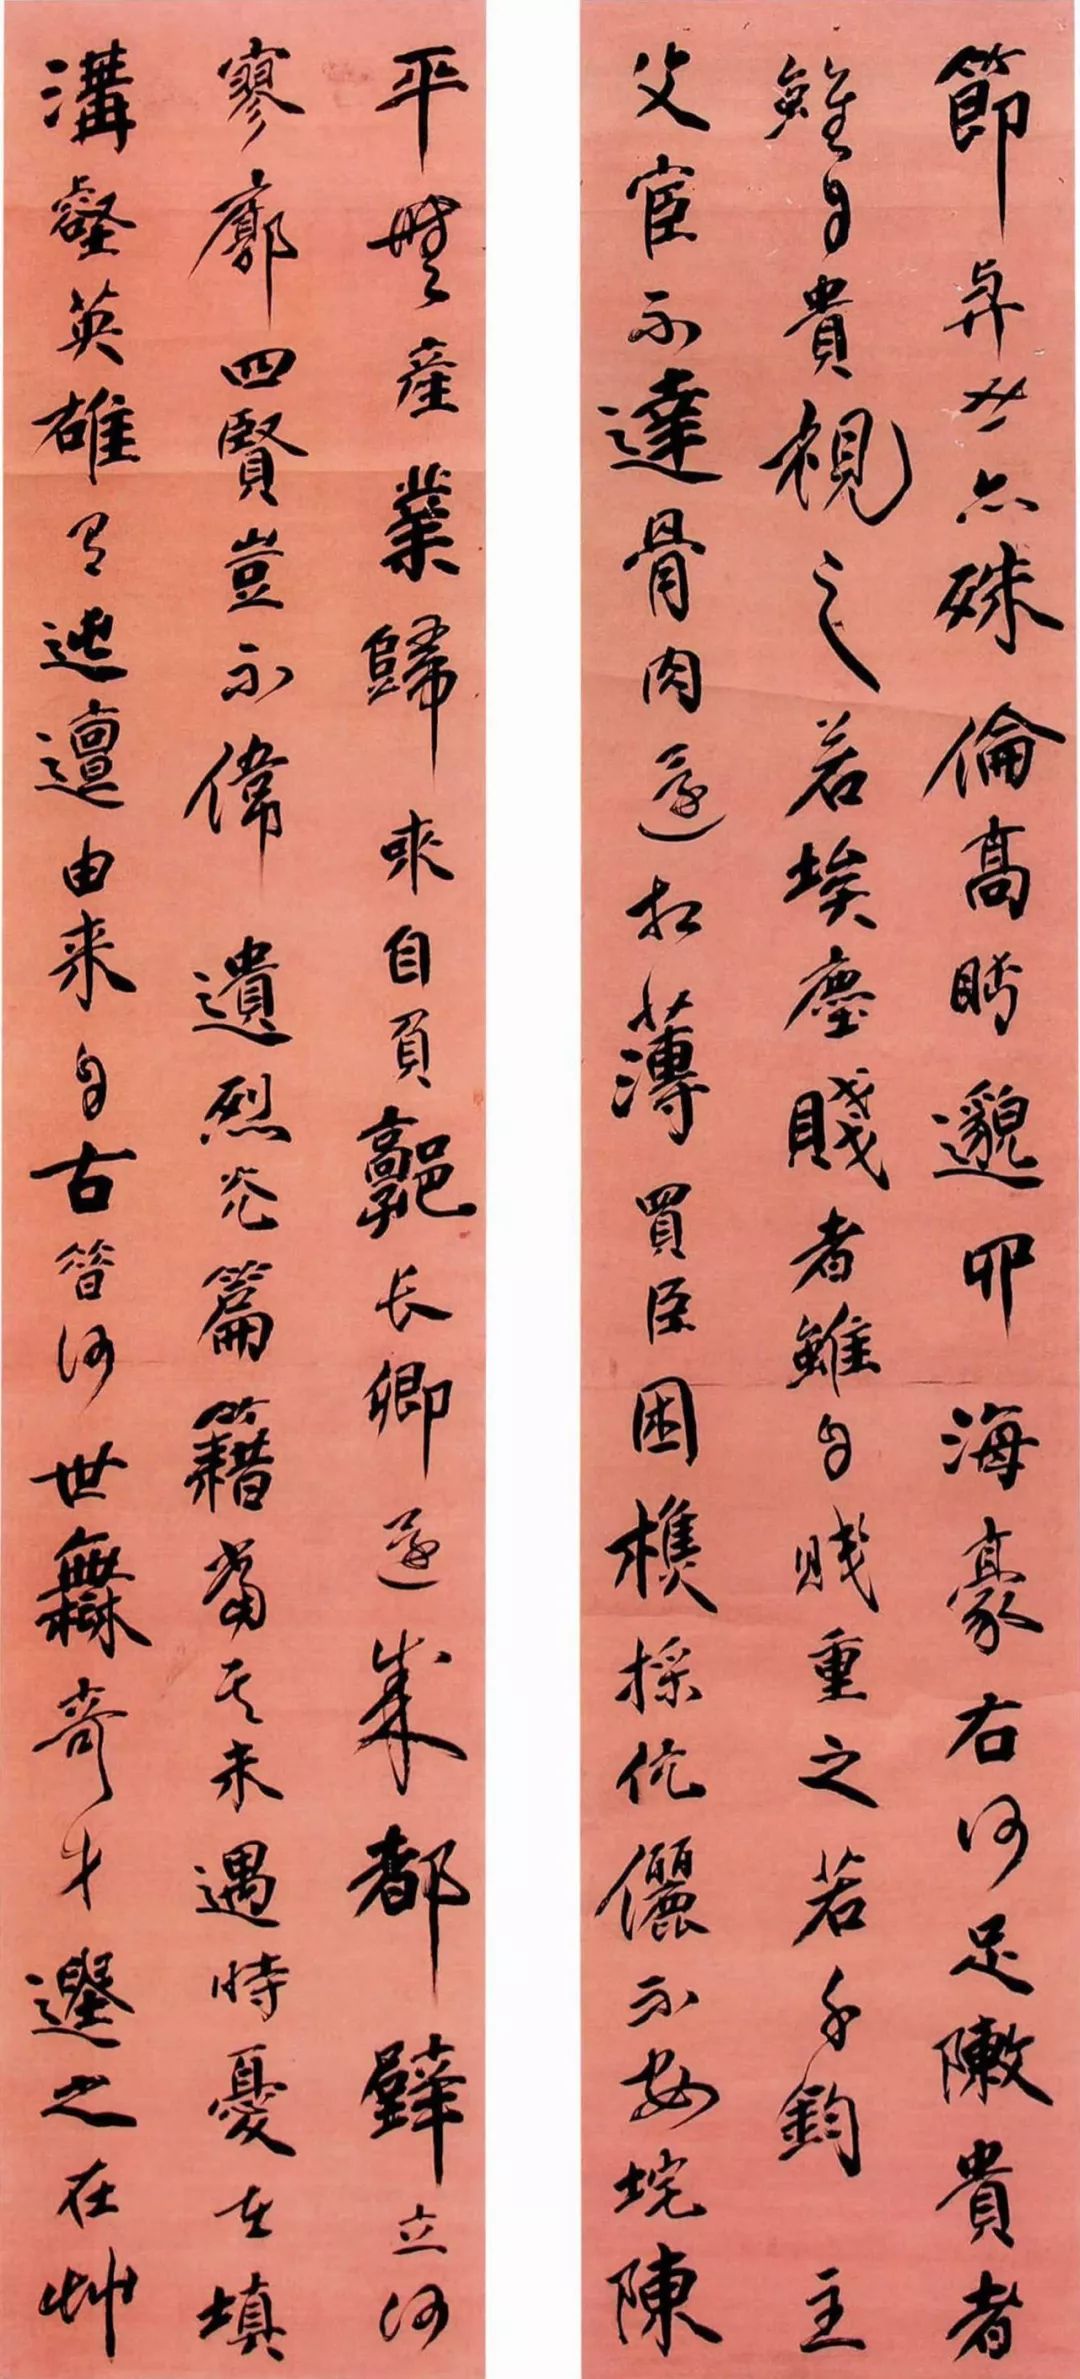 節與世亦殊倫高眄邈四海豪右何足陳貴者
雖自貴視之若埃塵賤者雖自賤重之若千鈞主
父宦不達骨肉還相薄買臣困樵採伉儷不安宅陳
平無產業歸來翳負郭長卿還成都壁立何
寥廓四賢豈不偉遺烈光篇籍當其未遇時憂在填
溝壑英雄有迍邅由來自古昔何世無奇才遺之在草